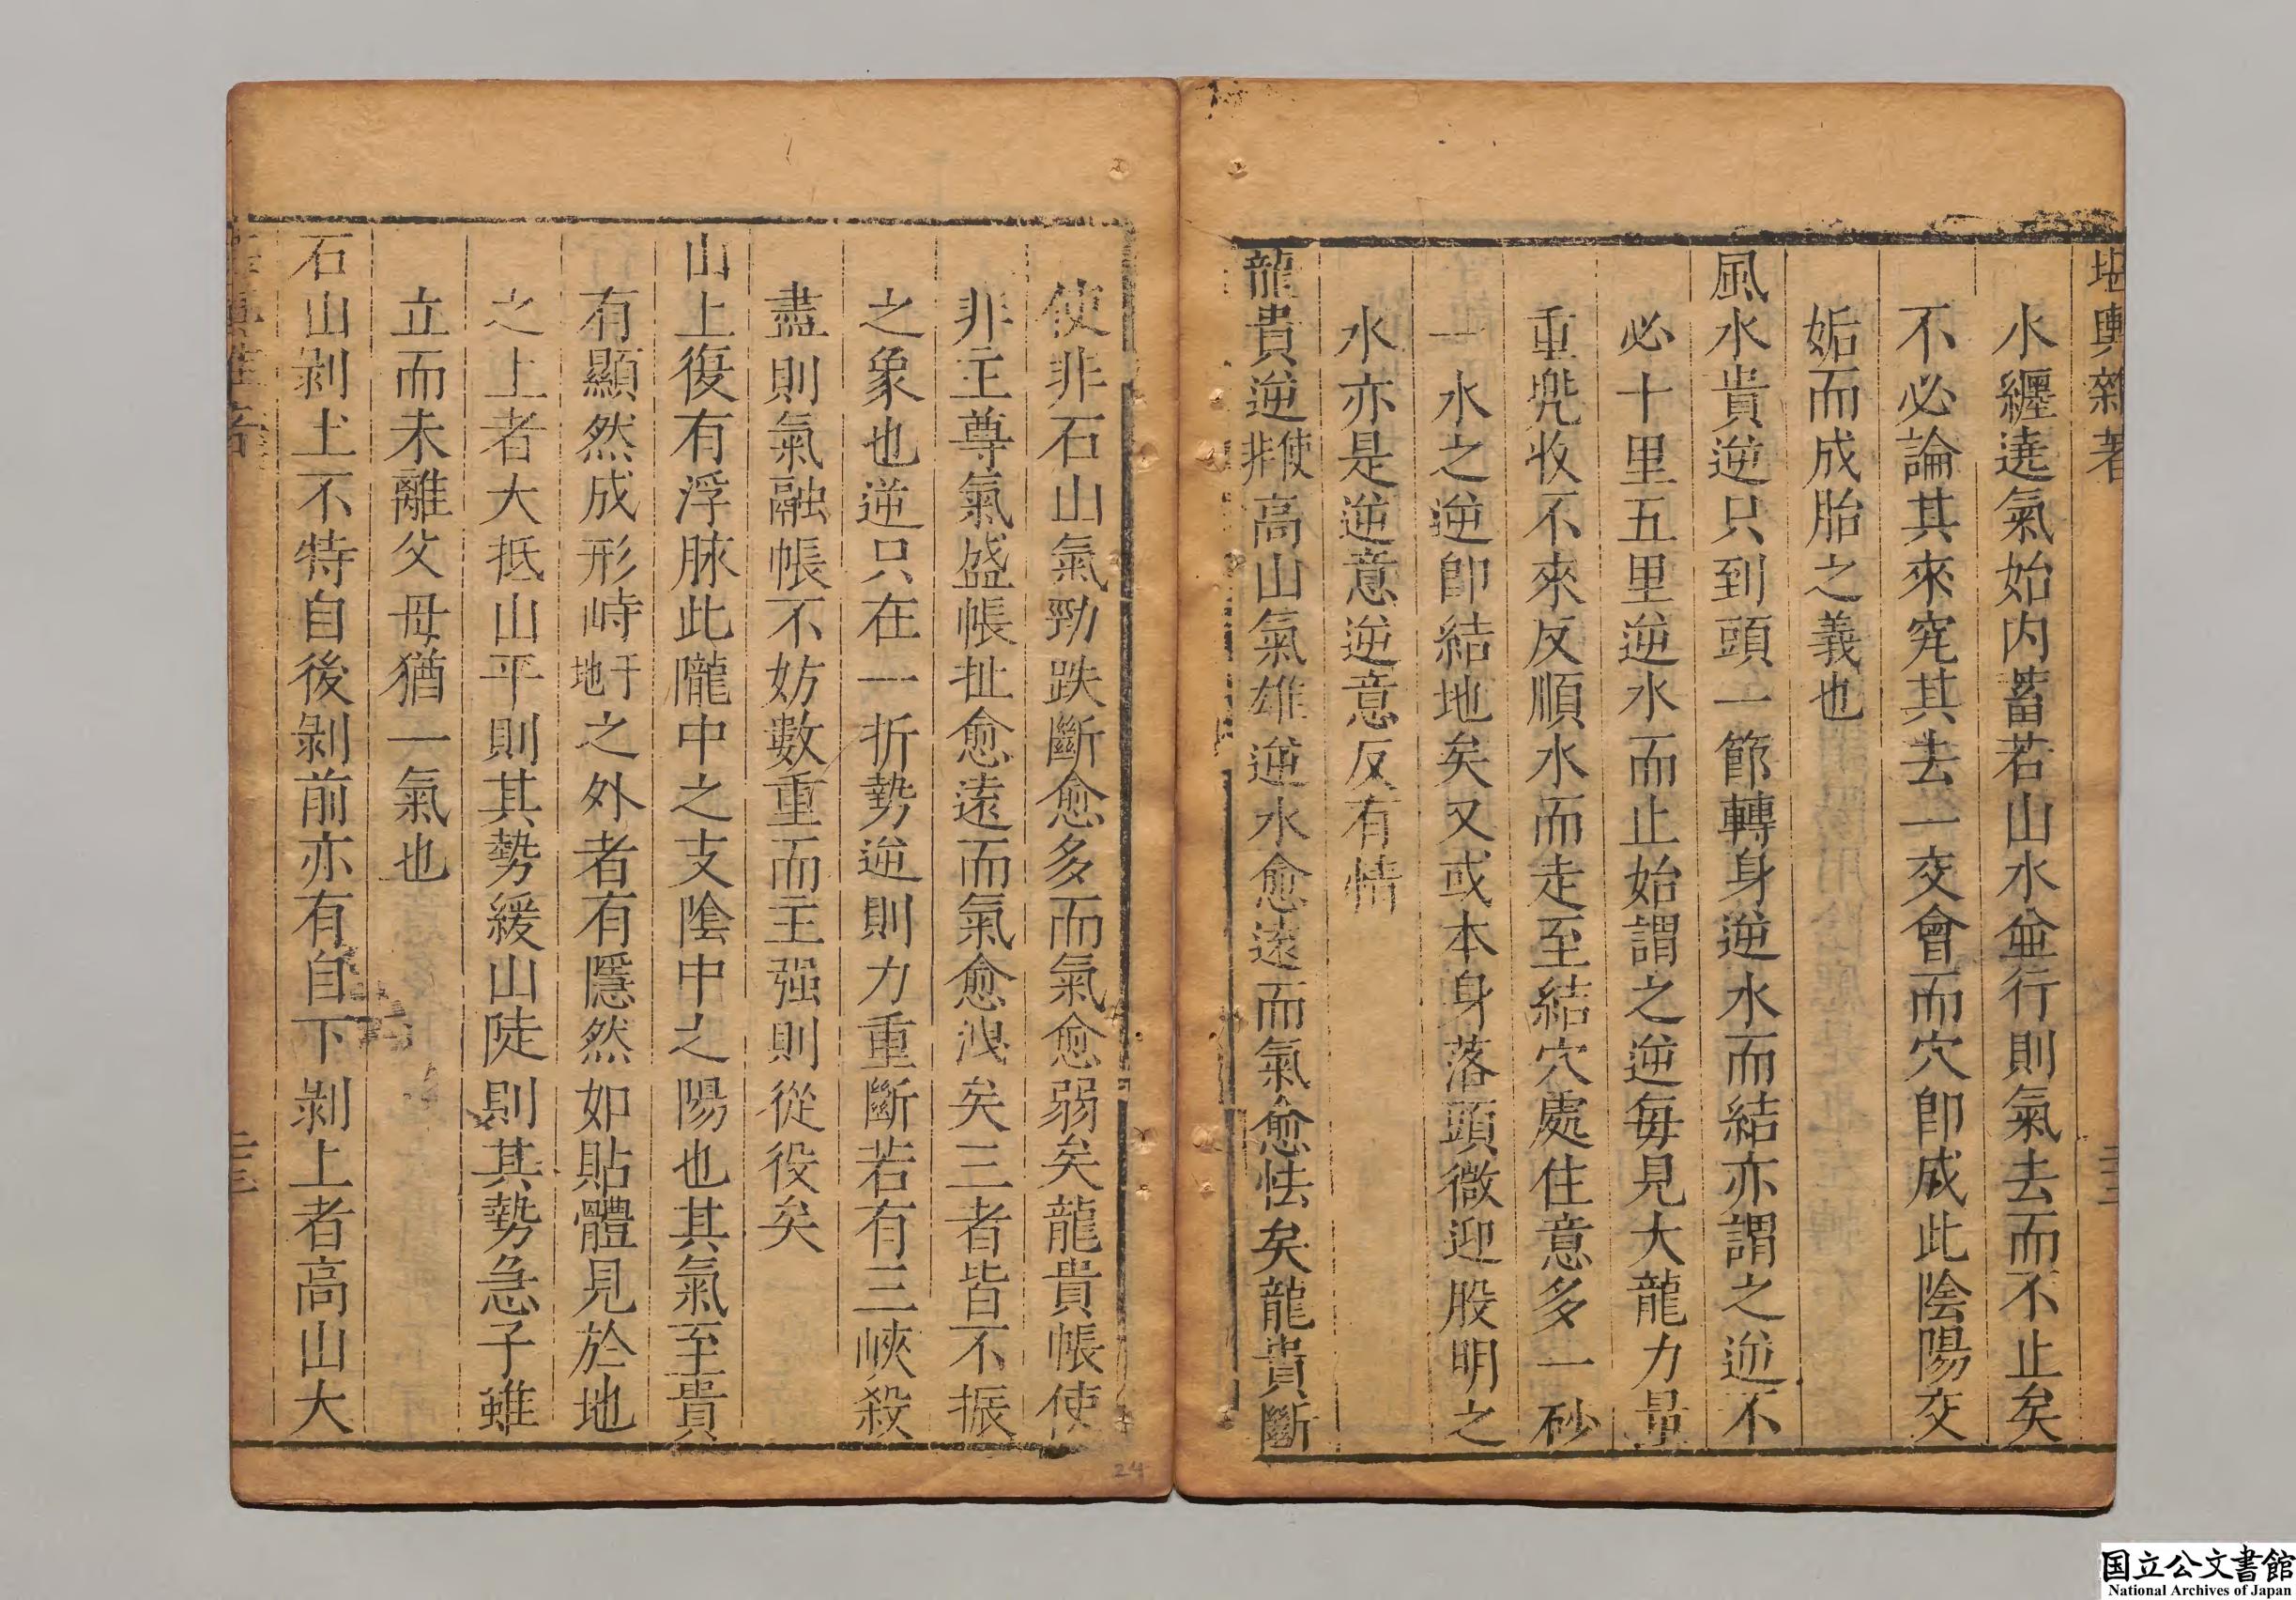 堪輿雜著
水纏遶氣始内蓄若山水並行則氣去而不止矣
不必論其來究其去一交會而穴卽成此陰陽交
姤而成胎之義也
風水貴逆只到頭一節轉身逆水而結亦謂之逆不
必十里五里逆水而止始謂之逆每見大龍力量
重兠收不來反順水而走至結穴處住意多一砂
一水之逆卽結地矣又或本身落頭微迎股明之
水亦是逆意逆意反有情
龍貴逆使非高山氣雄逆水愈遠而氣愈怯矣龍貴斷
使非石山氣勁跌斷愈多而氣愈弱矣龍貴帳使
非主尊氣盛帳扯愈遠而氣愈洩矣三者皆不振
之象也逆只在一折勢逆則力重斷若有三峽殺
盡則氣融帳不妨數重而主强則從役矣
山上復有浮脉此隴中之支陰中之陽也其氣至貴
有顯然成形峙于地之外者有隱然如貼體見於地
之上者大抵山平則其勢緩山陡則其勢急子雖
立而未離父母猶一氣也
石山剝土不特自後剝前亦有自下剝上者高山大
24
国立公文書館
National Archives of Japan